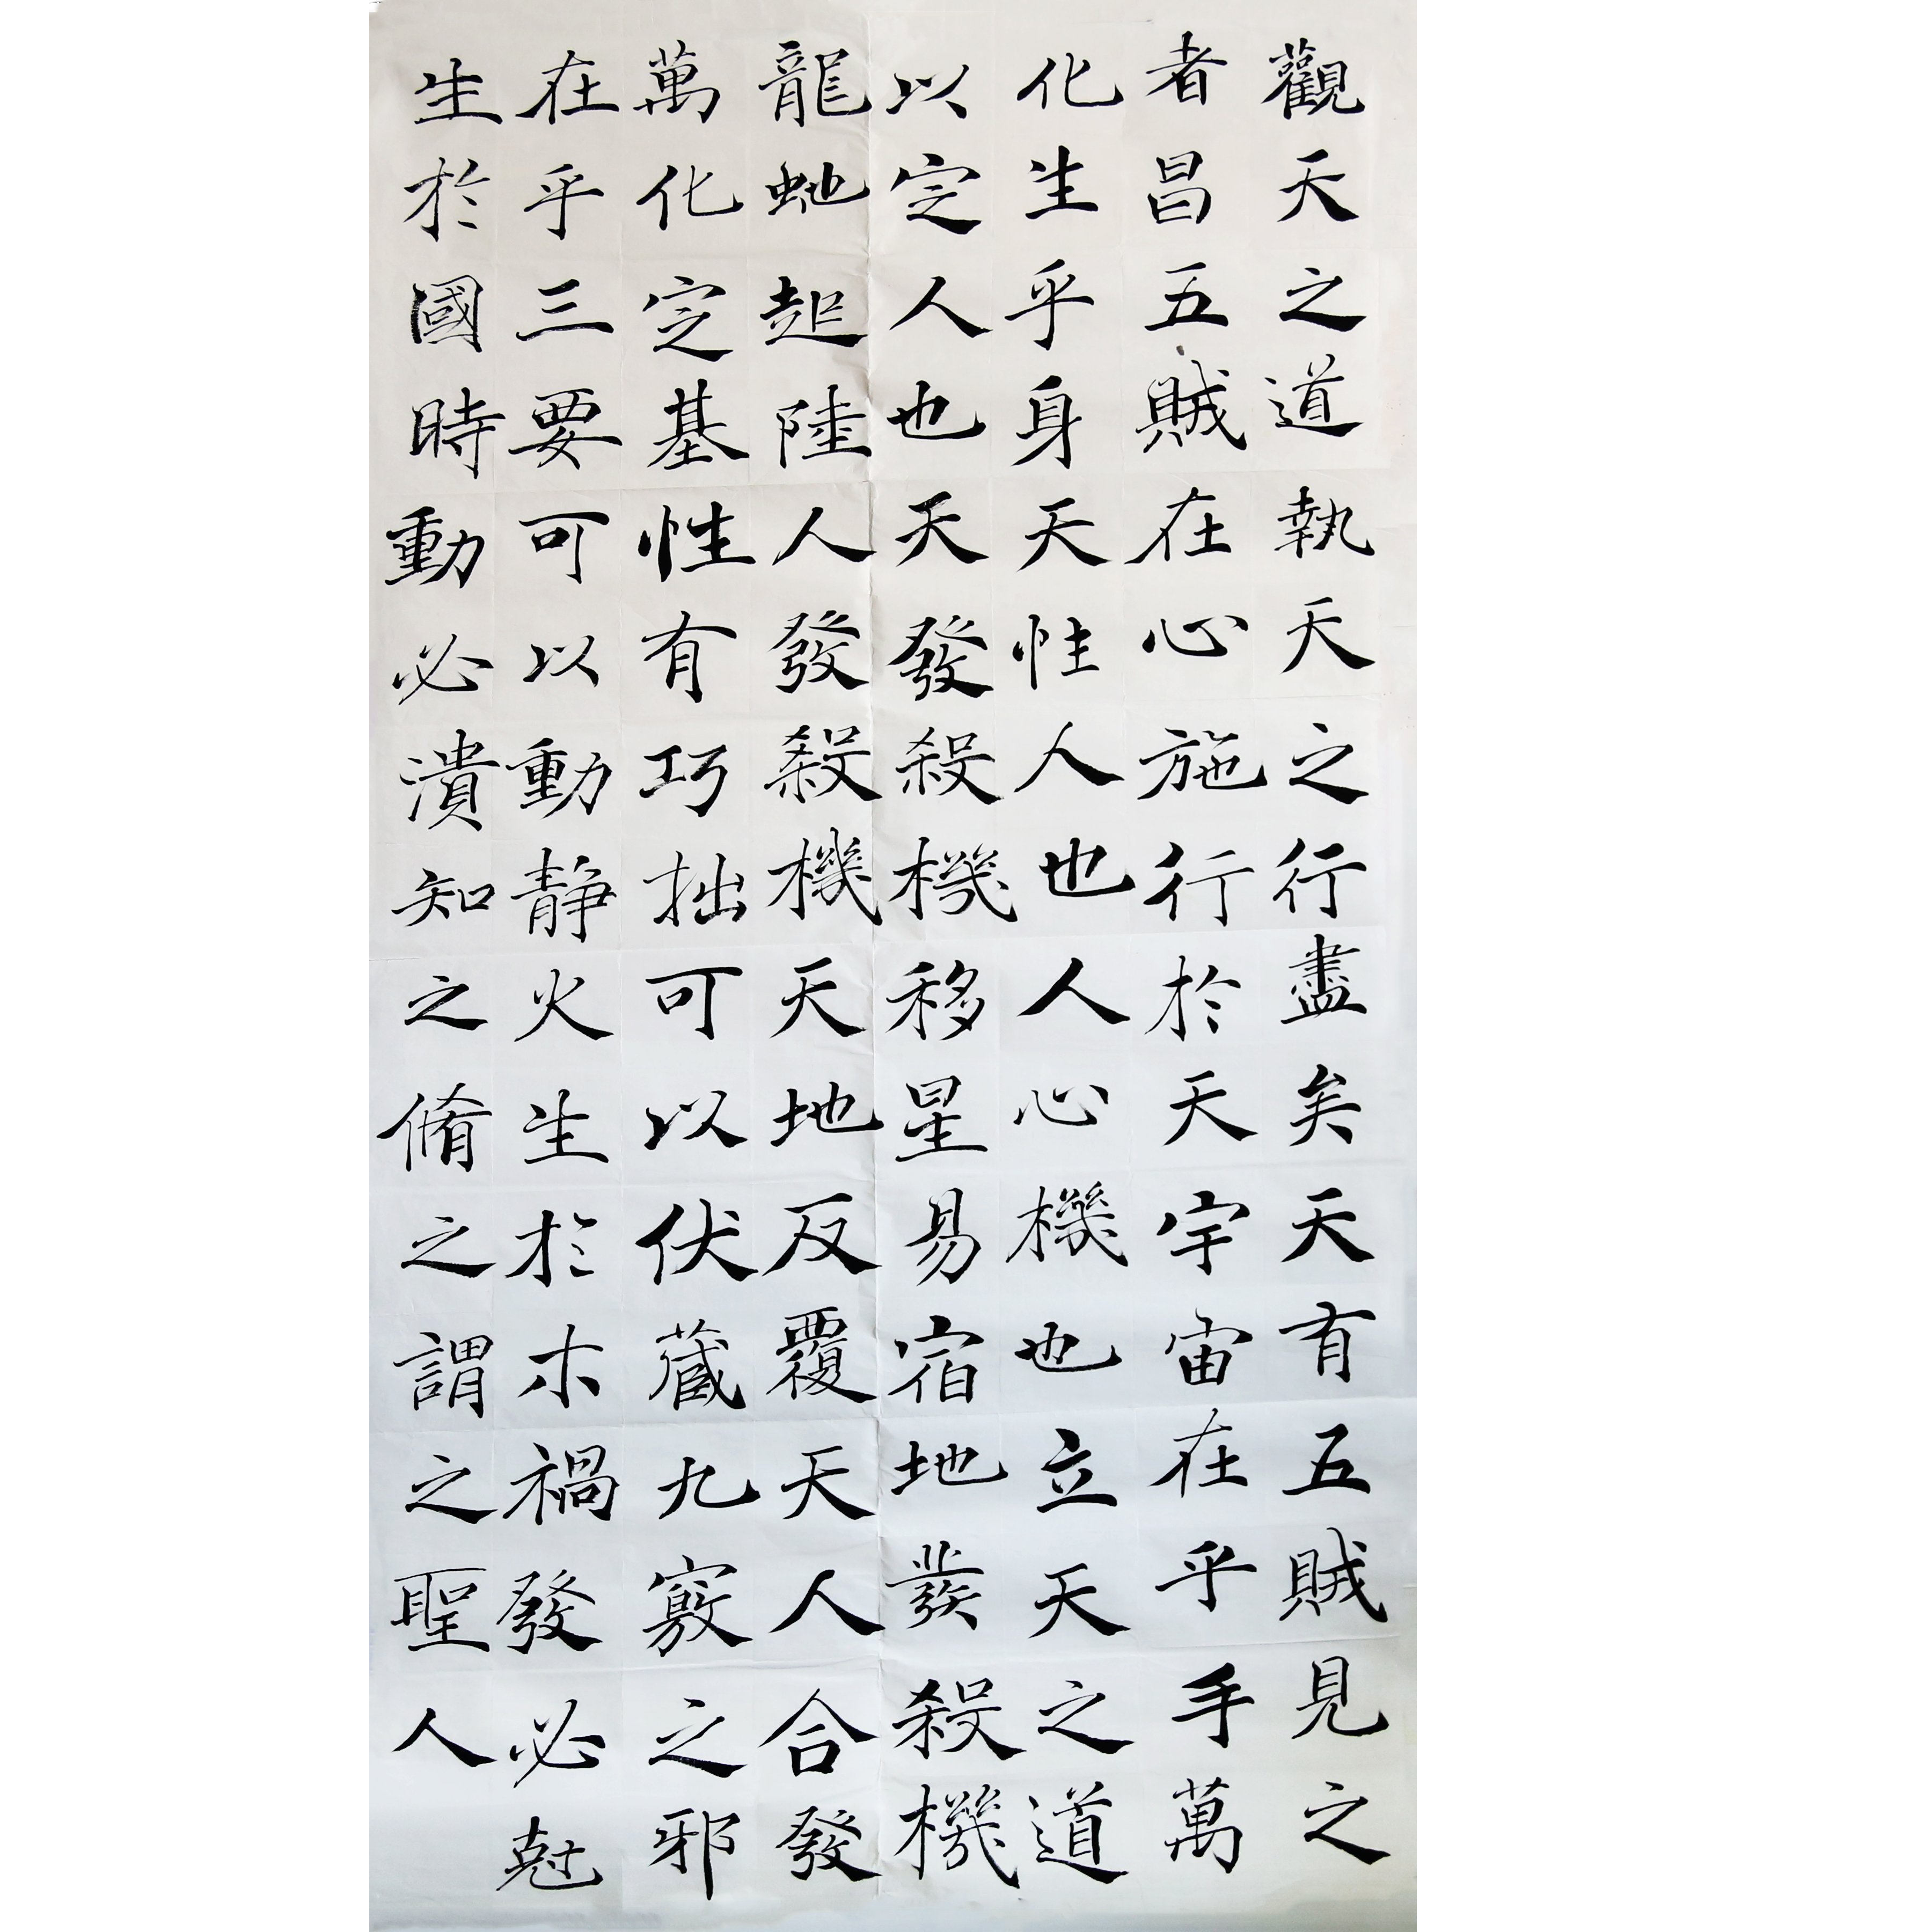 觀天之道執天之行盡矣天有五賊見之
者昌五賊在心施行於天宇宙在乎手萬
化生乎身天性人也人心機也立天之道
以定人也天發殺機移星易宿地發殺機
龍虵起陸人發殺機天地反覆天人合發
萬化定基性有巧拙可以伏藏九竅之邪
在乎三要可以動靜火生於木禍發必尅
生於國時動必潰知之脩之謂之聖人